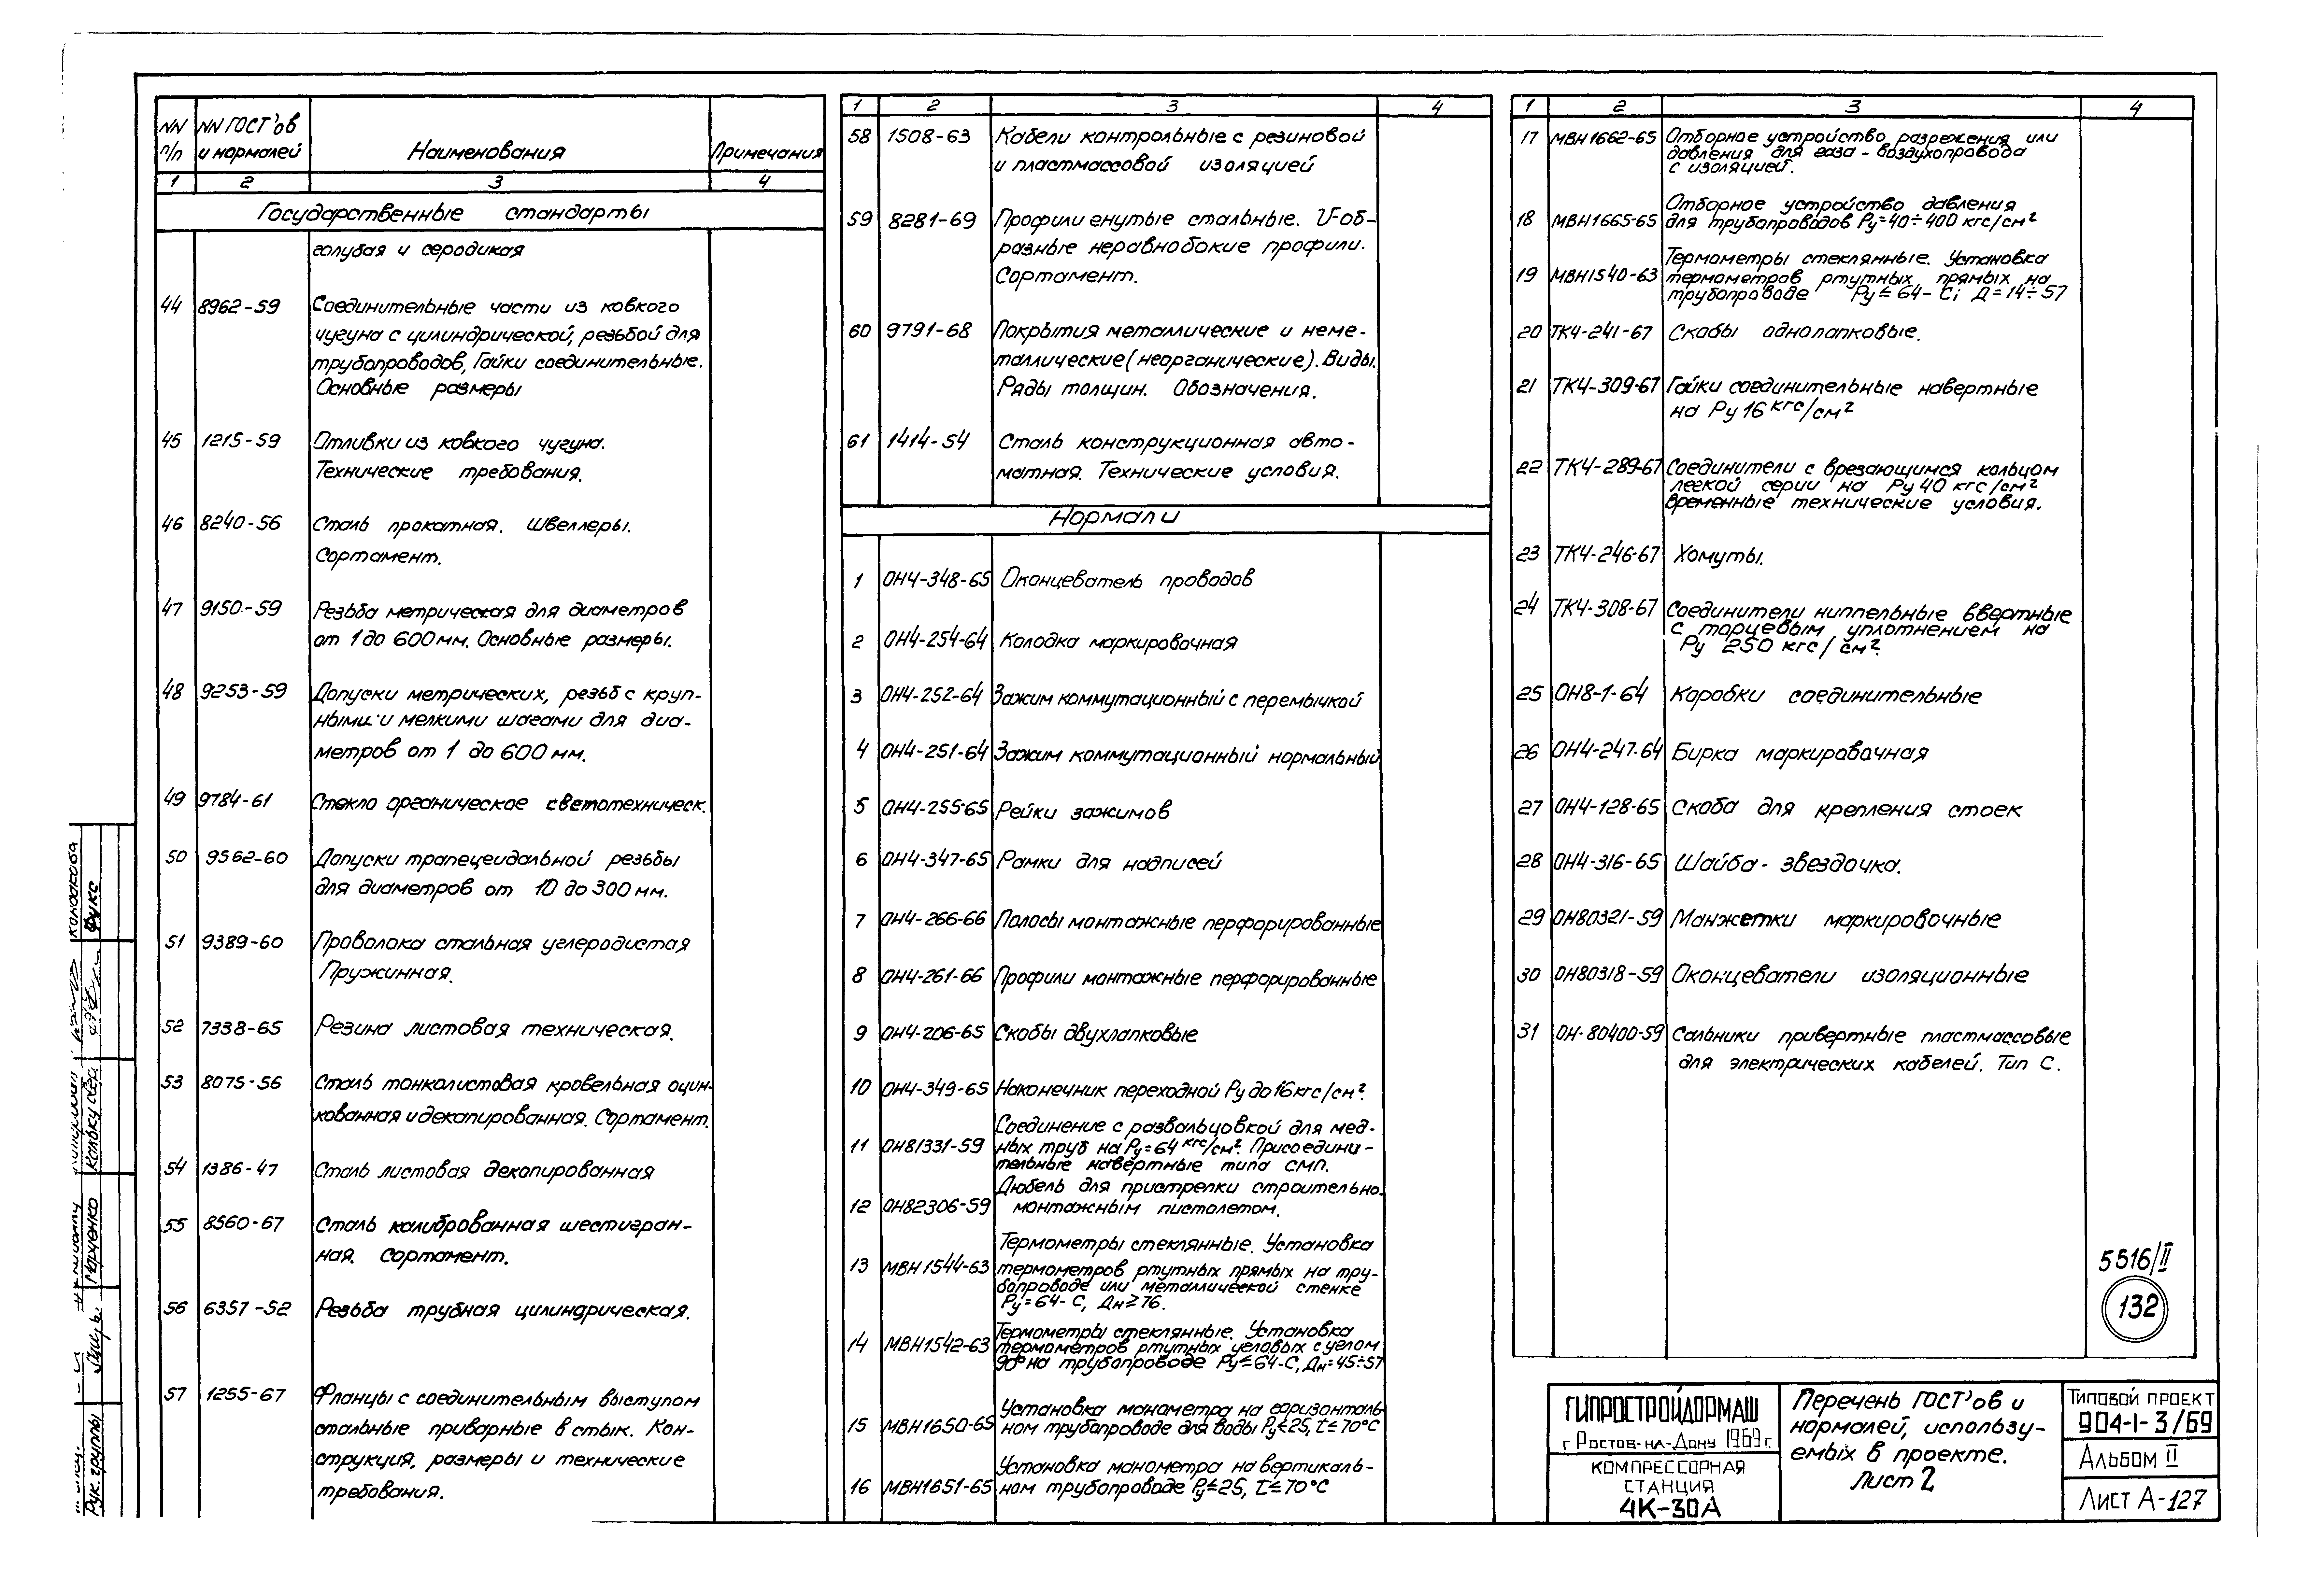 NN п/п NN ГОСТ'ов и нормалей Наименования Примечания
1 2 3 4
Государственные стандарты
голубая и серодикая
44 8962-59 Соединительные части из ковкого
чугуна с цилиндрической, резьбой для
трубопроводов, Гайки соединительные.
Основные размеры
45 1215-59 Отливки из ковкого чугуна.
Технические требования.
46 8240-56 Сталь прокатная. Швеллеры.
Сортамент.
47 9150-59 Резьба метрическая для диаметров
от 1 до 600 мм. Основные размеры.
48 9253-59 Допуски метрических, резьб с круп-
ными и мелкими шагами для диа-
метров от 1 до 600 мм.
49 9784-61 Стекло органическое светотехническ.
50 9562-60 Допуски трапецеидальной резьбы
для диаметров от 10 до 300 мм.
51 9389-60 Проволока стальная углеродистая
Пружинная.
52 7338-65 Резина листовая техническая.
53 8075-56 Сталь тонколистовая кровельная оцин-
кованная и декапированная. Сортамент.
54 1386-47 Сталь листовая декапированная
55 8560-67 Сталь калиброванная шестигран-
ная. Сортамент.
56 6357-52 Резьба трубная цилиндрическая.
57 1255-67 Фланцы с соединительным выступом
стальные приварные в стык. Кон-
струкция, размеры и технические
требования.
1 2 3 4
58 1508-63 Кабели контрольные с резиновой
и пластмассовой изоляцией
59 8281-69 Профили гнутые стальные. U-об-
разные неравнобокие профили.
Сортамент.
60 9791-68 Покрытия металлические и неме-
таллические (неорганические). Виды.
Ряды толщин. Обозначения.
61 1414-54 Сталь конструкционная авто-
матная. Технические условия.
Нормали
1 ОН4-348-65 Оконцеватель проводов
2 ОН4-254-64 Колодка маркировочная
3 ОН4-252-64 Зажим коммутационный с перемычкой
4 ОН4-251-64 Зажим коммутационный нормальный
5 ОН4-255-65 Рейки зажимов
6 ОН4-347-65 Рамки для надписей
7 ОН4-266-66 Полосы монтажные перфорированные
8 ОН4-261-66 Профили монтажные перфорированные
9 ОН4-206-65 Скобы двухлапковые
10 ОН4-349-65 Наконечник переходной Ру до 16 кгс/см².
11 ОН81331-59 Соединение с развальцовкой для мед-
ных труб на Ру=64 кгс/см². Присоедини-
тельные навертные типа СМП.
12 ОН82306-59 Дюбель для пристрелки строительно-
монтажным пистолетом.
13 МВН1544-63 Термометры стеклянные. Установка
термометров ртутных прямых на тру-
бопроводе или металлической стенке
Ру=64-С, Дн≥76.
14 МВН1542-63 Термометры стеклянные. Установка
термометров ртутных угловых с углом
90° на трубопроводе Ру≤64-С, Дн=45÷57
15 МВН1650-65 Установка манометра на горизонталь
ном трубопроводе для воды Ру≤25, t≤70°С
16 МВН1651-65 Установка манометра на вертикаль-
ном трубопроводе Ру≤25, t≤70°С
1 2 3 4
17 МВН1662-65 Отборное устройство разрежения или
давления для газа - воздухопровода
с изоляцией.
18 МВН1665-65 Отборное устройство давления
для трубопроводов Ру=40÷400 кгс/см²
19 МВН1540-63 Термометры стеклянные. Установка
термометров ртутных прямых на
трубопроводе Ру≤64-С; Д=14÷57
20 ТК4-241-67 Скобы однолапковые.
21 ТК4-309-67 Гайки соединительные навертные
на Ру 16 кгс/см²
22 ТК4-289-67 Соединители с врезающимся кольцом
легкой серии на Ру 40 кгс/см²
Временные технические условия.
23 ТК4-246-67 Хомуты.
24 ТК4-308-67 Соединители ниппельные ввертные
с торцевым уплотнением на
Ру 250 кгс/см².
25 ОН8-1-64 Коробки соединительные
26 ОН4-247-64 Бирка маркировочная
27 ОН4-128-65 Скоба для крепления стоек
28 ОН4-316-65 Шайба - звездочка.
29 ОН80321-59 Манжетки маркировочные
30 ОН80318-59 Оконцеватели изоляционные
31 ОН-80400-59 Сальники привертные пластмассовые
для электрических кабелей. Тип С.
5516/II
132
ГИПРОСТРОЙДОРМАШ
г Ростов-на-Дону 1969 г.
КОМПРЕССОРНАЯ
СТАНЦИЯ
4К-30А
Перечень ГОСТ'ов и
нормалей, использу-
емых в проекте.
Лист 2
Типовой проект
904-1-3/69
Альбом II
Лист А-127
Рук. группы
Марченко
Фукс